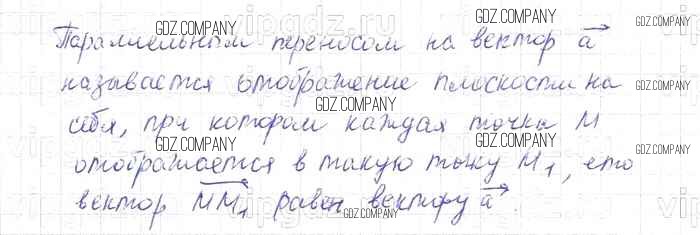 GDZ.COMPANY
Параллельным переносом на вектор a
GDZ.COMPANY
GDZ.COMPANY
называется отображение плоскости на
GDZ.COMPANY
себя, при котором каждая точка M
GDZ.COMPANY
GDZ.COMPANY
отображается в такую точку M₁, что
вектор MM₁ равен вектору a
GDZ.COMPANY
GDZ.COMPANY